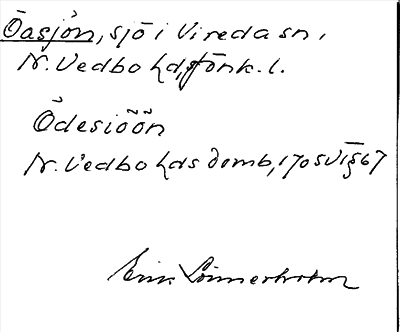 Öasjön, sjö i Vireda sn,
N. Vedbo hd, Jönk. l.
Ödesiöön
N. Vedbo hds domb, 1705 VT § 67
Erik Lönnerholm